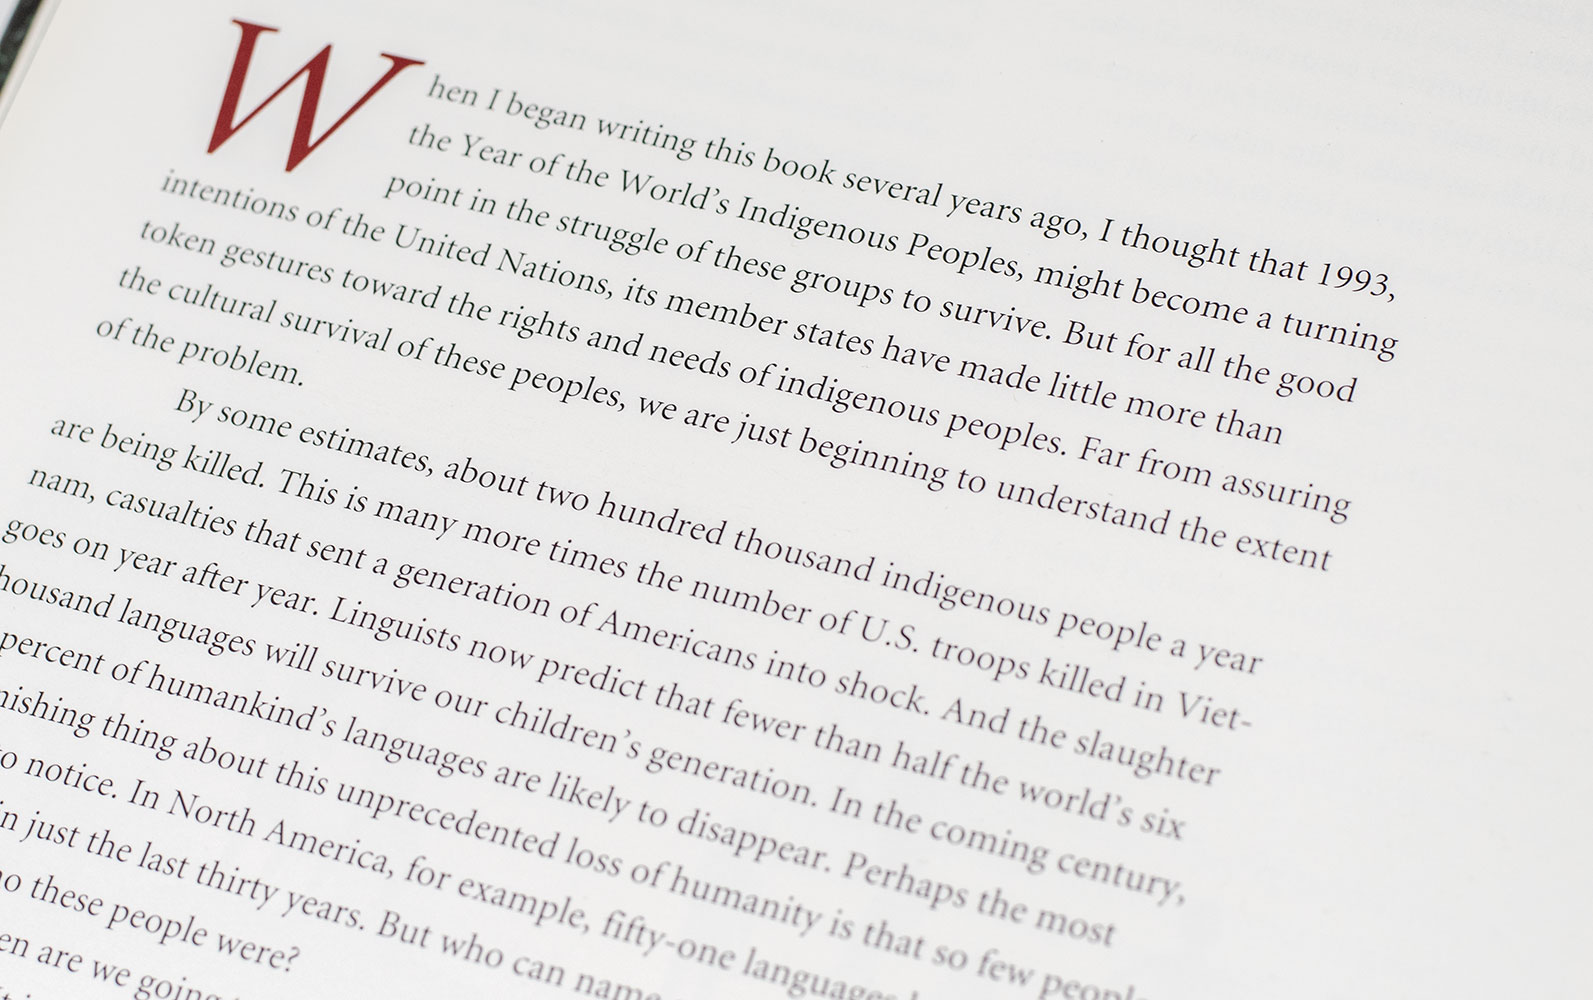 When I began writing this book several years ago, I thought that 1993,
the Year of the World's Indigenous Peoples, might become a turning
point in the struggle of these groups to survive. But for all the good
intentions of the United Nations, its member states have made little more than
token gestures toward the rights and needs of indigenous peoples. Far from assuring
the cultural survival of these peoples, we are just beginning to understand the extent
of the problem.
By some estimates, about two hundred thousand indigenous people a year
are being killed. This is many more times the number of U.S. troops killed in Viet-
nam, casualties that sent a generation of Americans into shock. And the slaughter
goes on year after year. Linguists now predict that fewer than half the world's six
housand languages will survive our children's generation. In the coming century,
percent of humankind's languages are likely to disappear. Perhaps the most
nishing thing about this unprecedented loss of humanity is that so few people
o notice. In North America, for example, fifty-one languages
in just the last thirty years. But who can name
o these people were?
en are we going